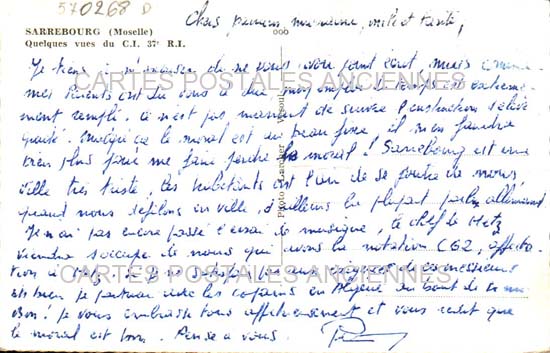 570268 D
SARREBOURG (Moselle)
Quelques vues du C.I. 37e R.I.
Chers parrain, marraine, et
Je tiens à de ne vous avoir pas écrit, mais comme
CARTES POSTALES ANCIENNES
mes parents ont dû vous le dire mon emploi du temps est extrême
ment rempli. Ce n'est pas marrant de suivre l'instruction d'élève
gradé. Quoique ce le moral est au beau fixe, il m'en faudra
bien plus pour me faire perdre le moral ! Sarrebourg est une
ville très triste, les habitants ont l'air de se foutre de nous,
quand nous défilons en ville, d'ailleurs la plupart parlent allemand
Je n'ai pas encore passé l'essai de musique, le chef de Metz
viendra s'occuper de nous qui avons la notation CG2, affecta-
tion à Metz. Si je ne pas aux exigences de ces messieurs
CARTES POSTALES ANCIENNES
et bien je partirai avec les copains en Algérie au bout de
Je vous embrasse tous affectueusement et vous redit que
le moral est bon. Pense à vous.
Photo Larcher - Vesoul